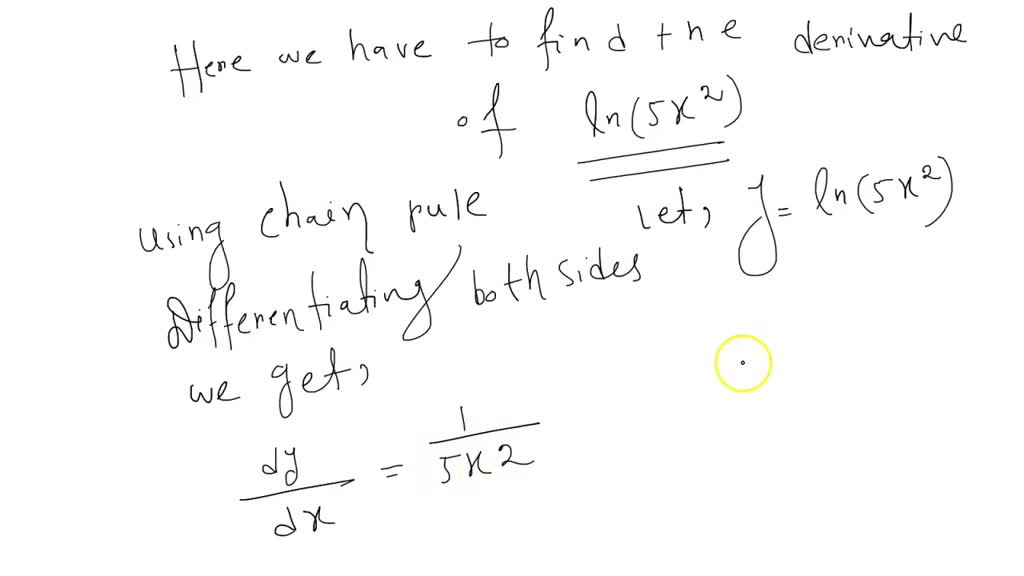 Here we have to find the derivative
of ln(5x²)
Let, y = ln(5x²)
using chain rule
Differentiating both sides
we get,
dy/dx = 1/5x2